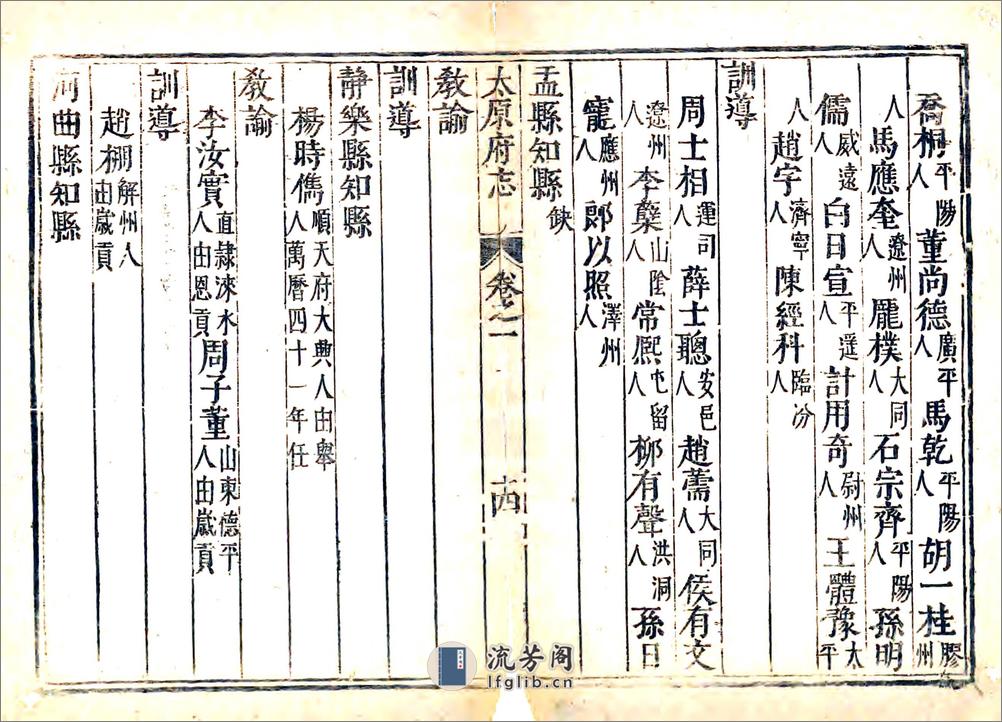 喬桐平陽人董尚德廣平人馬乾平陽人胡一桂膠州
人馬應奎遼州人龐樸大同人石宗齊平陽人孫明
儒威遠人白日宣平遥人計用奇尉州人王體豫太平
人趙字濟寧人陳經科臨汾人
訓導
周士相運司人薛士聰安邑人趙薷大同人侯有文
遼州人李櫱山陰人常熈屯留人柳有聲洪洞人孫日
寵應州人郎以照澤州人
盂縣知縣缺
太原府志 卷之一 十四
教諭
訓導
靜樂縣知縣
楊時儁順天府大典人由舉人萬曆四十一年任
教諭
李汝實直隸淶水人由恩貢周子董山東德平人由歲貢
訓導
趙棚解州人由歲貢
河曲縣知縣
流芳阁
lfglib.cn